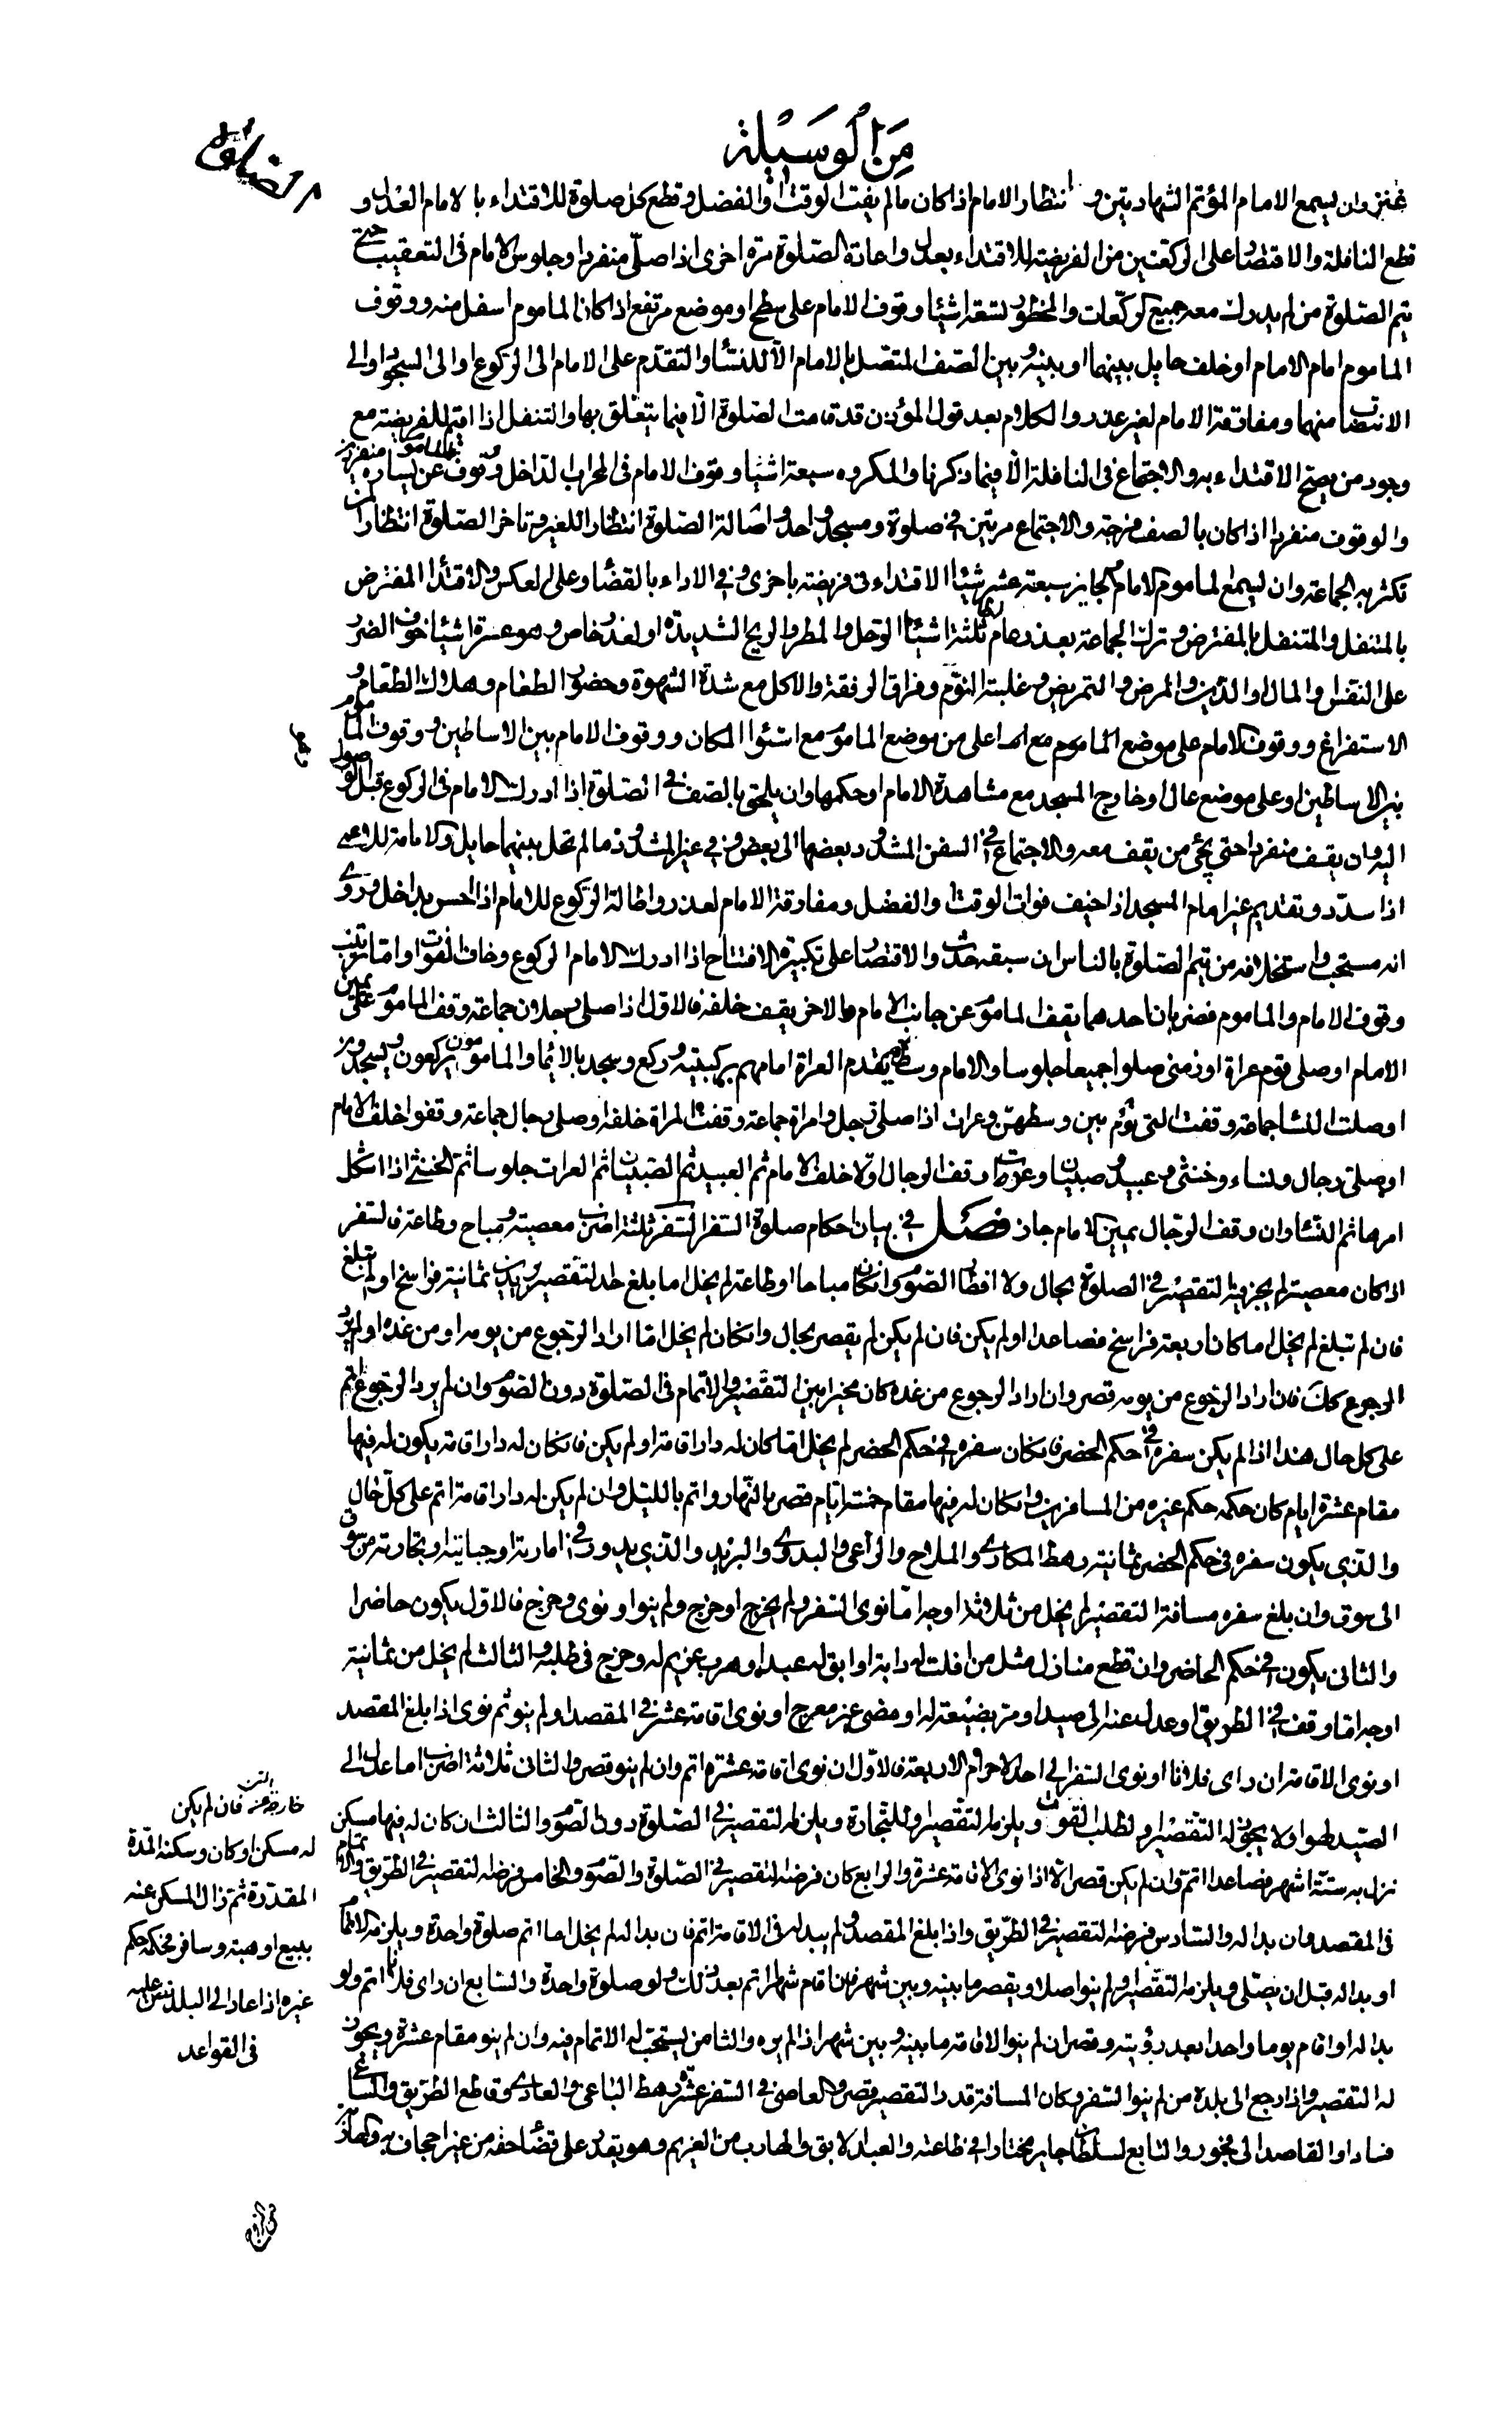 من الوسيلة
الصلوة
غيره وان يسمع الامام المؤتم الشهادتين و انتظار الامام اذا كان مالم يفت الوقت او الفضل و قطع كل صلوة للاقتداء بالامام العدل و
قطع النافلة والاقتصار على الركعتين من الفريضة للاقتداء بعدل واعادة الصلوة مرة اخرى اذا صلى منفردا وجلوس الامام فى التعقيب حتى
يتم الصلوة من لم يدرك معه جميع الركعات والمحظور تسعة اشياء وقوف الامام على سطح او موضع مرتفع اذا كان الماموم اسفل منه ووقوف
الماموم امام الامام او خلف حايل بينهما او بينه وبين الصف المتصل بالامام الا للنساء والتقدم على الامام الى الركوع او الى السجود او الى
الانتصاب منهما ومفارقة الامام لغير عذر والكلام بعد قول المؤذن قد قامت الصلوة الا فيما يتعلق بها والتنفل اذا اقيم للفريضة مع
وجود من يصح الاقتداء به والاجتماع فى النافلة الا فيما ذكرنا والمكروه سبعة اشياء وقوف الامام فى المحراب الداخل ووقوف الماموم عن يساره منفردين
والوقوف منفردا اذا كان بالصف فرجة والاجتماع مرتين فى صلوة ومسجد واحد واطالة الصلوة انتظارا للغير وتاخر الصلوة انتظارا لان
تكثر به الجماعة وان يسمع الماموم الامام والجايز سبعة عشر شيئا الاقتداء فى فريضة باخرى وفى الاداء بالقضاء وعلى العكس والاقتداء المفترض
بالمتنفل والمتنفل بالمفترض وترك الجماعة بعذر عام ثلثة اشياء الوحل والمطر والريح الشديدة او لعذر خاص وهو عشرة اشياء خوف الضرر
على النفس والمال والدين والمرض والتمريض وغلبة النوم وفراق الرفقة والاكل مع شدة الشهوة وحضور الطعام وهلاك الطعام و
الاستفراغ ووقوف الامام على موضع الماموم مع اعلى من موضع الماموم مع استواء المكان ووقوف الامام بين الاساطين ووقوف الماموم
بين الاساطين او على موضع عال او خارج المسجد مع مشاهدة الامام او حكمها وان يلحق بالصف فى الصلوة اذا ادرك الامام فى الركوع قبل الوصول
اليه وان يقف منفردا حتى يجئ من يقف معه والاجتماع فى السفن المشدود بعضها الى بعض وفى غير المشدود مالم يحل بينهما حايل والامامة للاعمى
اذا سدد وتقديم غير امام المسجد اذا خيف فوات الوقت او الفضل ومفارقة الامام لعذر واطالة الركوع للامام اذا احس بداخل وروى
انه مستحب واستخلافه من يتم الصلوة بالناس ان سبقه حدث والاقتصار على تكبيرة الافتتاح اذا ادرك الامام الركوع وخاف الفوات واما ترتيب
وقوف الامام والماموم فضربان احدهما يقف الماموم عن جانب الامام والاخر يقف خلفه فالاول اذا صلى رجلان جماعة وقف الماموم على يمين
الامام او صلى قوم عراة او زمنى صلوا جميعا جلوسا والامام وسطهم يتقدم العراة امامهم بركبتيه وركع وسجد بالايماء والمامومون يركعون ويسجدون
او صلت النساء جماعة وقفت التى تؤم بين وسطهن وعرات اذا صلى رجل وامراة جماعة وقفت المراة خلفه او صلى رجال جماعة وقفوا خلف الامام
او صلى رجال ونساء وخنثى وعبيد وصبيان وعراة وقف الرجال اولا خلف الامام ثم العبيد ثم الصبيان ثم العرات جلوسا ثم الخنثى اذا اشكل
امرها ثم النساء وان وقف الرجال بيمين الامام جاز فصل فى بيان احكام صلوة السفر السفر ثلثة اضرب معصية ومباح وطاعة فالسفر
اذا كان معصية لم يجز فيه التقصير فى الصلوة بحال ولا افطار الصوم وان كان مباحا او طاعة لم يخل اما بلغ حد التقصير بريدين ثمانية فراسخ او لم تبلغ
فان لم تبلغ لم يخل اما كان اربعة فراسخ فصاعدا او لم يكن فان لم يكن لم يقصر بحال وان كان لم يخل اما اراد الرجوع من يومه او من غده او لم يرد
الرجوع كك فان اراد الرجوع من يومه قصر وان اراد الرجوع من غده كان مخيرا بين التقصير والاتمام فى الصلوة دون الصوم وان لم يرد الرجوع اتم
على كل حال هذا اذا لم يكن سفره فى حكم الحضر فان كان سفره فى حكم الحضر لم يخل اما كان له دار اقامة او لم يكن فان كان له دار اقامة يكون له فيها
مقام عشرة ايام كان حكمه حكم غيره من المسافرين وان كان له فيها مقام خمسة ايام قصر بالنهار واتم بالليل وان لم يكن له دار اقامة اتم على كل حال
والذى يكون سفره فى حكم الحضر ثمانية رهط المكارى والملاح والراعى والبدوى والبريد والذى يدور فى امارته او جبايته او تجارته من سوق
الى سوق وان بلغ سفره مسافة التقصير لم يخل من ثلاثة اوجه اما نوى السفر ولم يخرج او خرج ولم ينو او نوى وخرج فالاول يكون حاضرا
والثانى يكون فى حكم الحاضر وان قطع منازل مثل من افلت له دابة او ابق له عبد او هرب غريم له وخرج فى طلبه والثالث لم يخل من ثمانية
اوجه اما وقف فى الطريق او عدل عنه الى صيد او مر بضيعة له او مضى غير معرج او نوى اقامة عشر فى المقصد او لم ينو ثم نوى اذا بلغ المقصد
او نوى الاقامة ان راى فلانا او نوى السفر الى احد الاحرام الاربعة فالاول ان نوى اقامة عشرة اتم وان لم ينو قصر والثانى ثلاثة اضرب اما عدل الى
الصيد لهوا ولا يجوز له التقصير او لطلب القوت ويلزمه التقصير او للتجارة ويلزمه التقصير فى الصلوة دون الصوم والثالث ان كان له فيها مسكن
نزل به ستة اشهر فصاعدا اتم وان لم يكن قصر الا اذا نوى الاقامة عشرة والرابع كان فرضه التقصير فى الصلوة والصوم والخامس فرضه التقصير فى الطريق والاتمام
فى المقصد فان بدا له والسادس فرضه التقصير فى الطريق واذا بلغ المقصد ولم يبد له فى الاقامة اتم فان بدا له لم يخل اما اتم صلوة واحدة ويلزمه الاتمام
او بدا له قبل ان يصلى ويلزمه التقصير ولم ينو اصلا ويقصر ما بينه وبين شهر فان اقام شهرا اتم بعد ذلك ولو صلوة واحدة والسابع ان راى فلانا اتم ولو
بدا له او اقام يوما واحدا بعد رؤيته وقصر ان لم ينو الاقامة ما بينه وبين شهر اذا لم يره والثامن يستحب له الاتمام فيه وان لم ينو مقام عشرة ويجوز
له التقصير واذا رجع الى بلده من لم ينو السفر وكان المسافة قدر التقصير قصر والعاصى فى السفر عشرة رهط الباغى والعادى وقاطع الطريق والساعى
فسادا والقاصد الى فجور والتابع لسلطان جاير مختارا فى طاعته والعبد الابق والهارب من الغريم وهو يقدر على قضاء حقه من غير اجحاف به والهارب
خارجة عنه فان لم يكن
له مسكن او كان وسكنه المدة
المقدرة ثم زال المسكن عنه
ببيع او هبة وسافر فحكمه حكم
غيره اذا عاد الى البلد نص عليه
فى القواعد